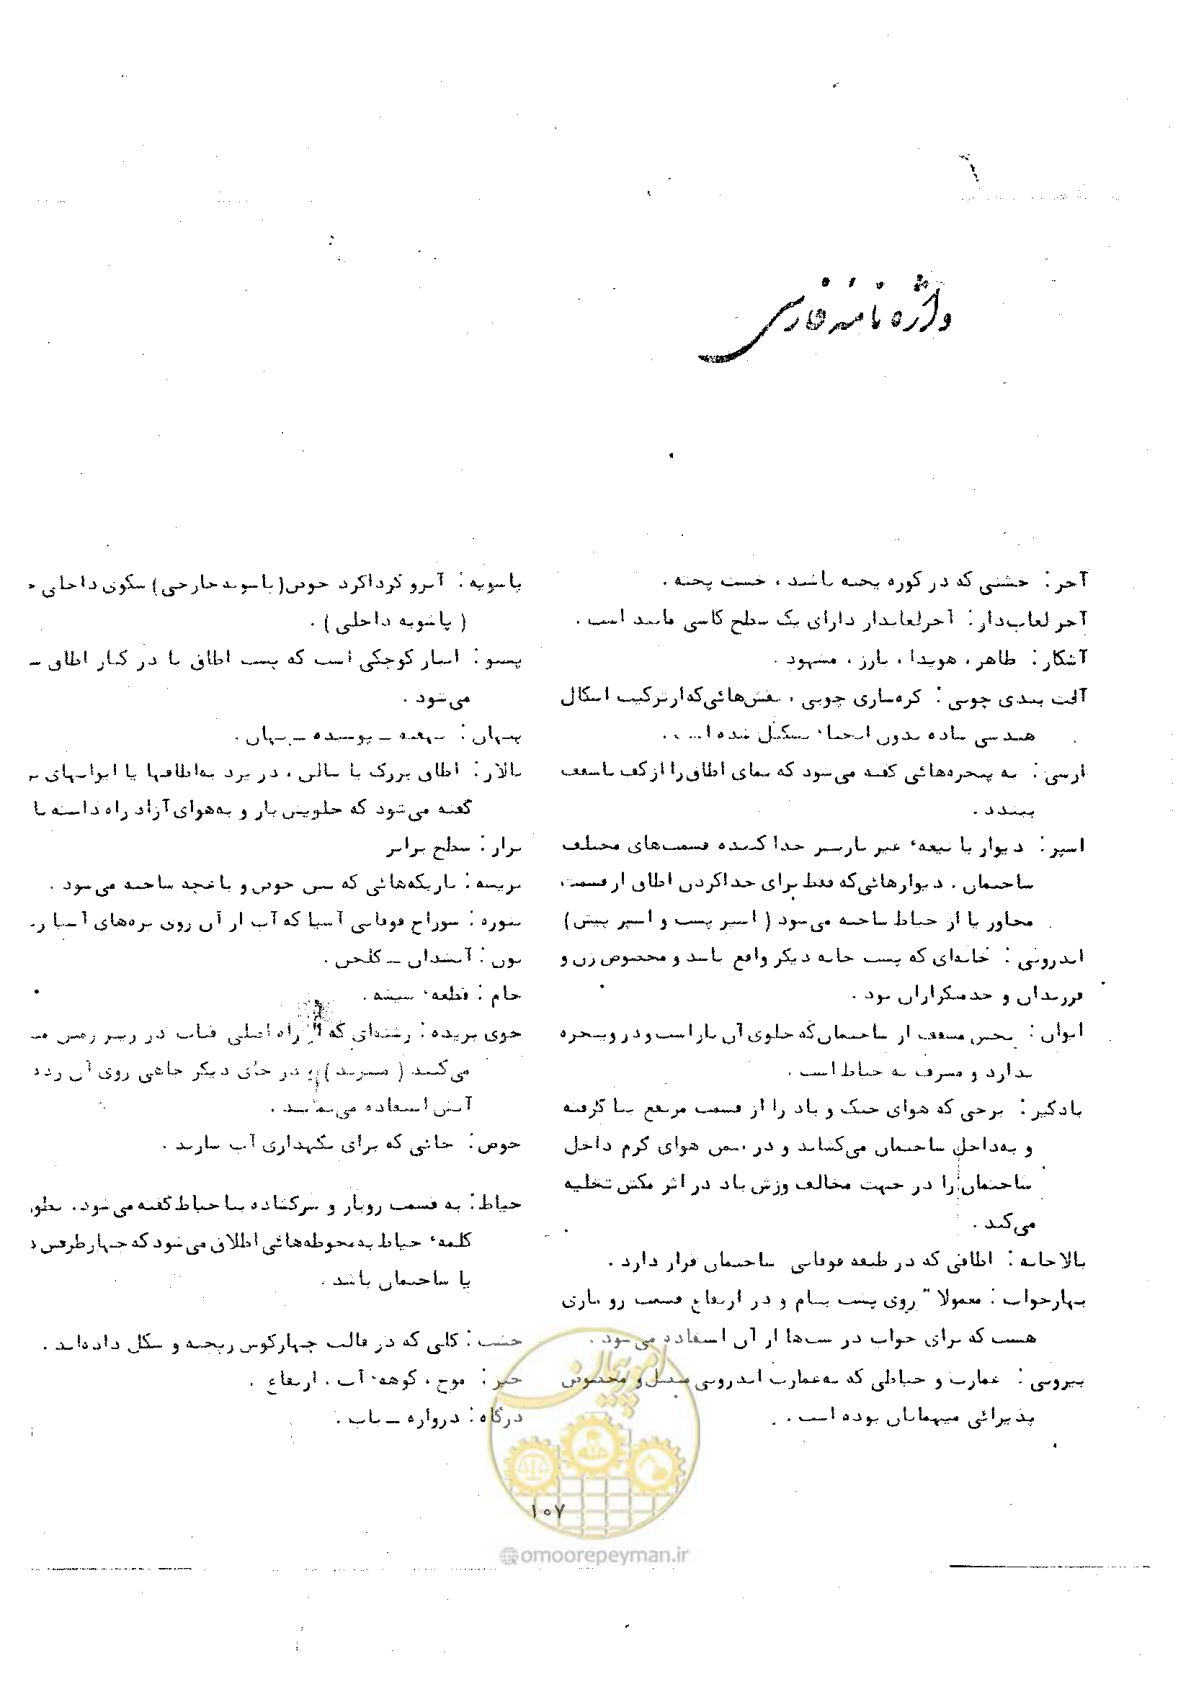 واژه نامه فارسی
آجر: خشتی که در کوره پخته باشد ، خشت پخته .
آجر لعاب‌دار: آجرلعابدار دارای یک سطح کاشی مانند است .
آشکار: ظاهر، هویدا ، بارز ، مشهود .
آلت بندی چوبی: گره‌سازی چوبی ، نقش‌هائی‌که‌ازترکیب اشکال
هندسی ساده بدون انحناء تشکیل شده است .
ارسی: به پنجره‌هائی گفته می‌شود که نمای اطاق‌را ازکف تاسقف
ببندد .
اسپر: دیوار یا تیغهٔ غیر باربر جدا کننده قسمت‌های مختلف
ساختمان . دیوارهائی‌که فقط برای جداکردن اطاق از قسمت
مجاور یا از حیاط ساخته می‌شود ( اسپر پشت و اسپر پیش)
اندرونی: خانه‌ای که پشت خانه دیگر واقع باشد و مخصوص زن و
فرزندان و خدمتگزاران بود .
ایوان: بخش مسقف از ساختمان‌که جلوی آن بازاست‌ودر وپنجره
ندارد و مشرف به حیاط است .
بادگیر: برجی که هوای خنک و باد را از قسمت مرتفع بنا گرفته
و به‌داخل ساختمان می‌کشاند و در ضمن هوای گرم داخل
ساختمان را در جهت مخالف وزش باد در اثر مکش تخلیه
می‌کند .
بالاخانه: اطاقی که در طبقه فوقانی ساختمان قرار دارد .
بهارخواب: معمولا" روی پشت بام و در ارتفاع قسمت رو بازی
هست که برای خواب در شب‌ها از آن استفاده می‌شود .
بیرونی: عمارت و حیاطی که به‌عمارت اندرونی متصل‌و مخصوص
پذیرائی میهمانان بوده است .
پاشویه: آبرو گرداگرد حوض(پاشویه‌خارجی) سکوی داخلی
( پاشویه داخلی ) .
پستو: انبار کوچکی است که پشت اطاق یا در کنار اطاق
می‌شود .
پنهان: نهفته ــ پوشیده ــ نهان .
تالار: اطاق بزرگ یا سالنی ، در یزد به‌اطاقها یا ایوانهای
گفته می‌شود که جلویش باز و به‌هوای آزاد راه داشته با
تراز: سطح برابر
باریکه‌هائی که بین حوض و باغچه ساخته می‌شود .
تنوره: سوراخ فوقانی آسیا که آب از آن روی پره‌های آسیا
تون: آتشدان ــ گلخن .
جام: قطعهٔ شیشه .
جوی بریده: رشته‌ای که از راه اصلی قنات در زیر زمین
می‌کنند ( میبرند ) و در جای دیگر چاهی روی آن زده
آبش استفاده می‌نمایند .
حوض: جائی که برای نگهداری آب سازند .
حیاط: به قسمت روباز و سرگشاده بنا حیاط گفته می‌شود. بطور
کلمهٔ حیاط به‌محوطه‌هائی اطلاق می‌شود که چهارطرفش
یا ساختمان باشد .
خشت: گلی که در قالب چهارگوش ریخته و شکل داده‌اند .
خیز: موج ، کوههٔ آب . ارتفاع .
درگاه: دروازه ــ باب .
امور پیمان
۱۰۷
@omoorepeyman.ir